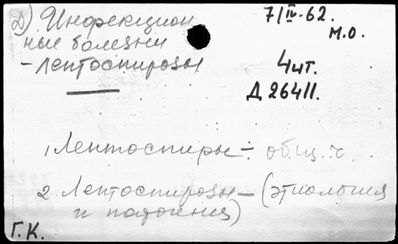 Д). Инфекцион
ные болезни
-Лептоспирозы
7/IV-62.
М.О.
4 шт.
Д 26411.
1. Лептоспиры - общ. ч.
2. Лептоспирозы - (этиология
и патогения)
Г.К.